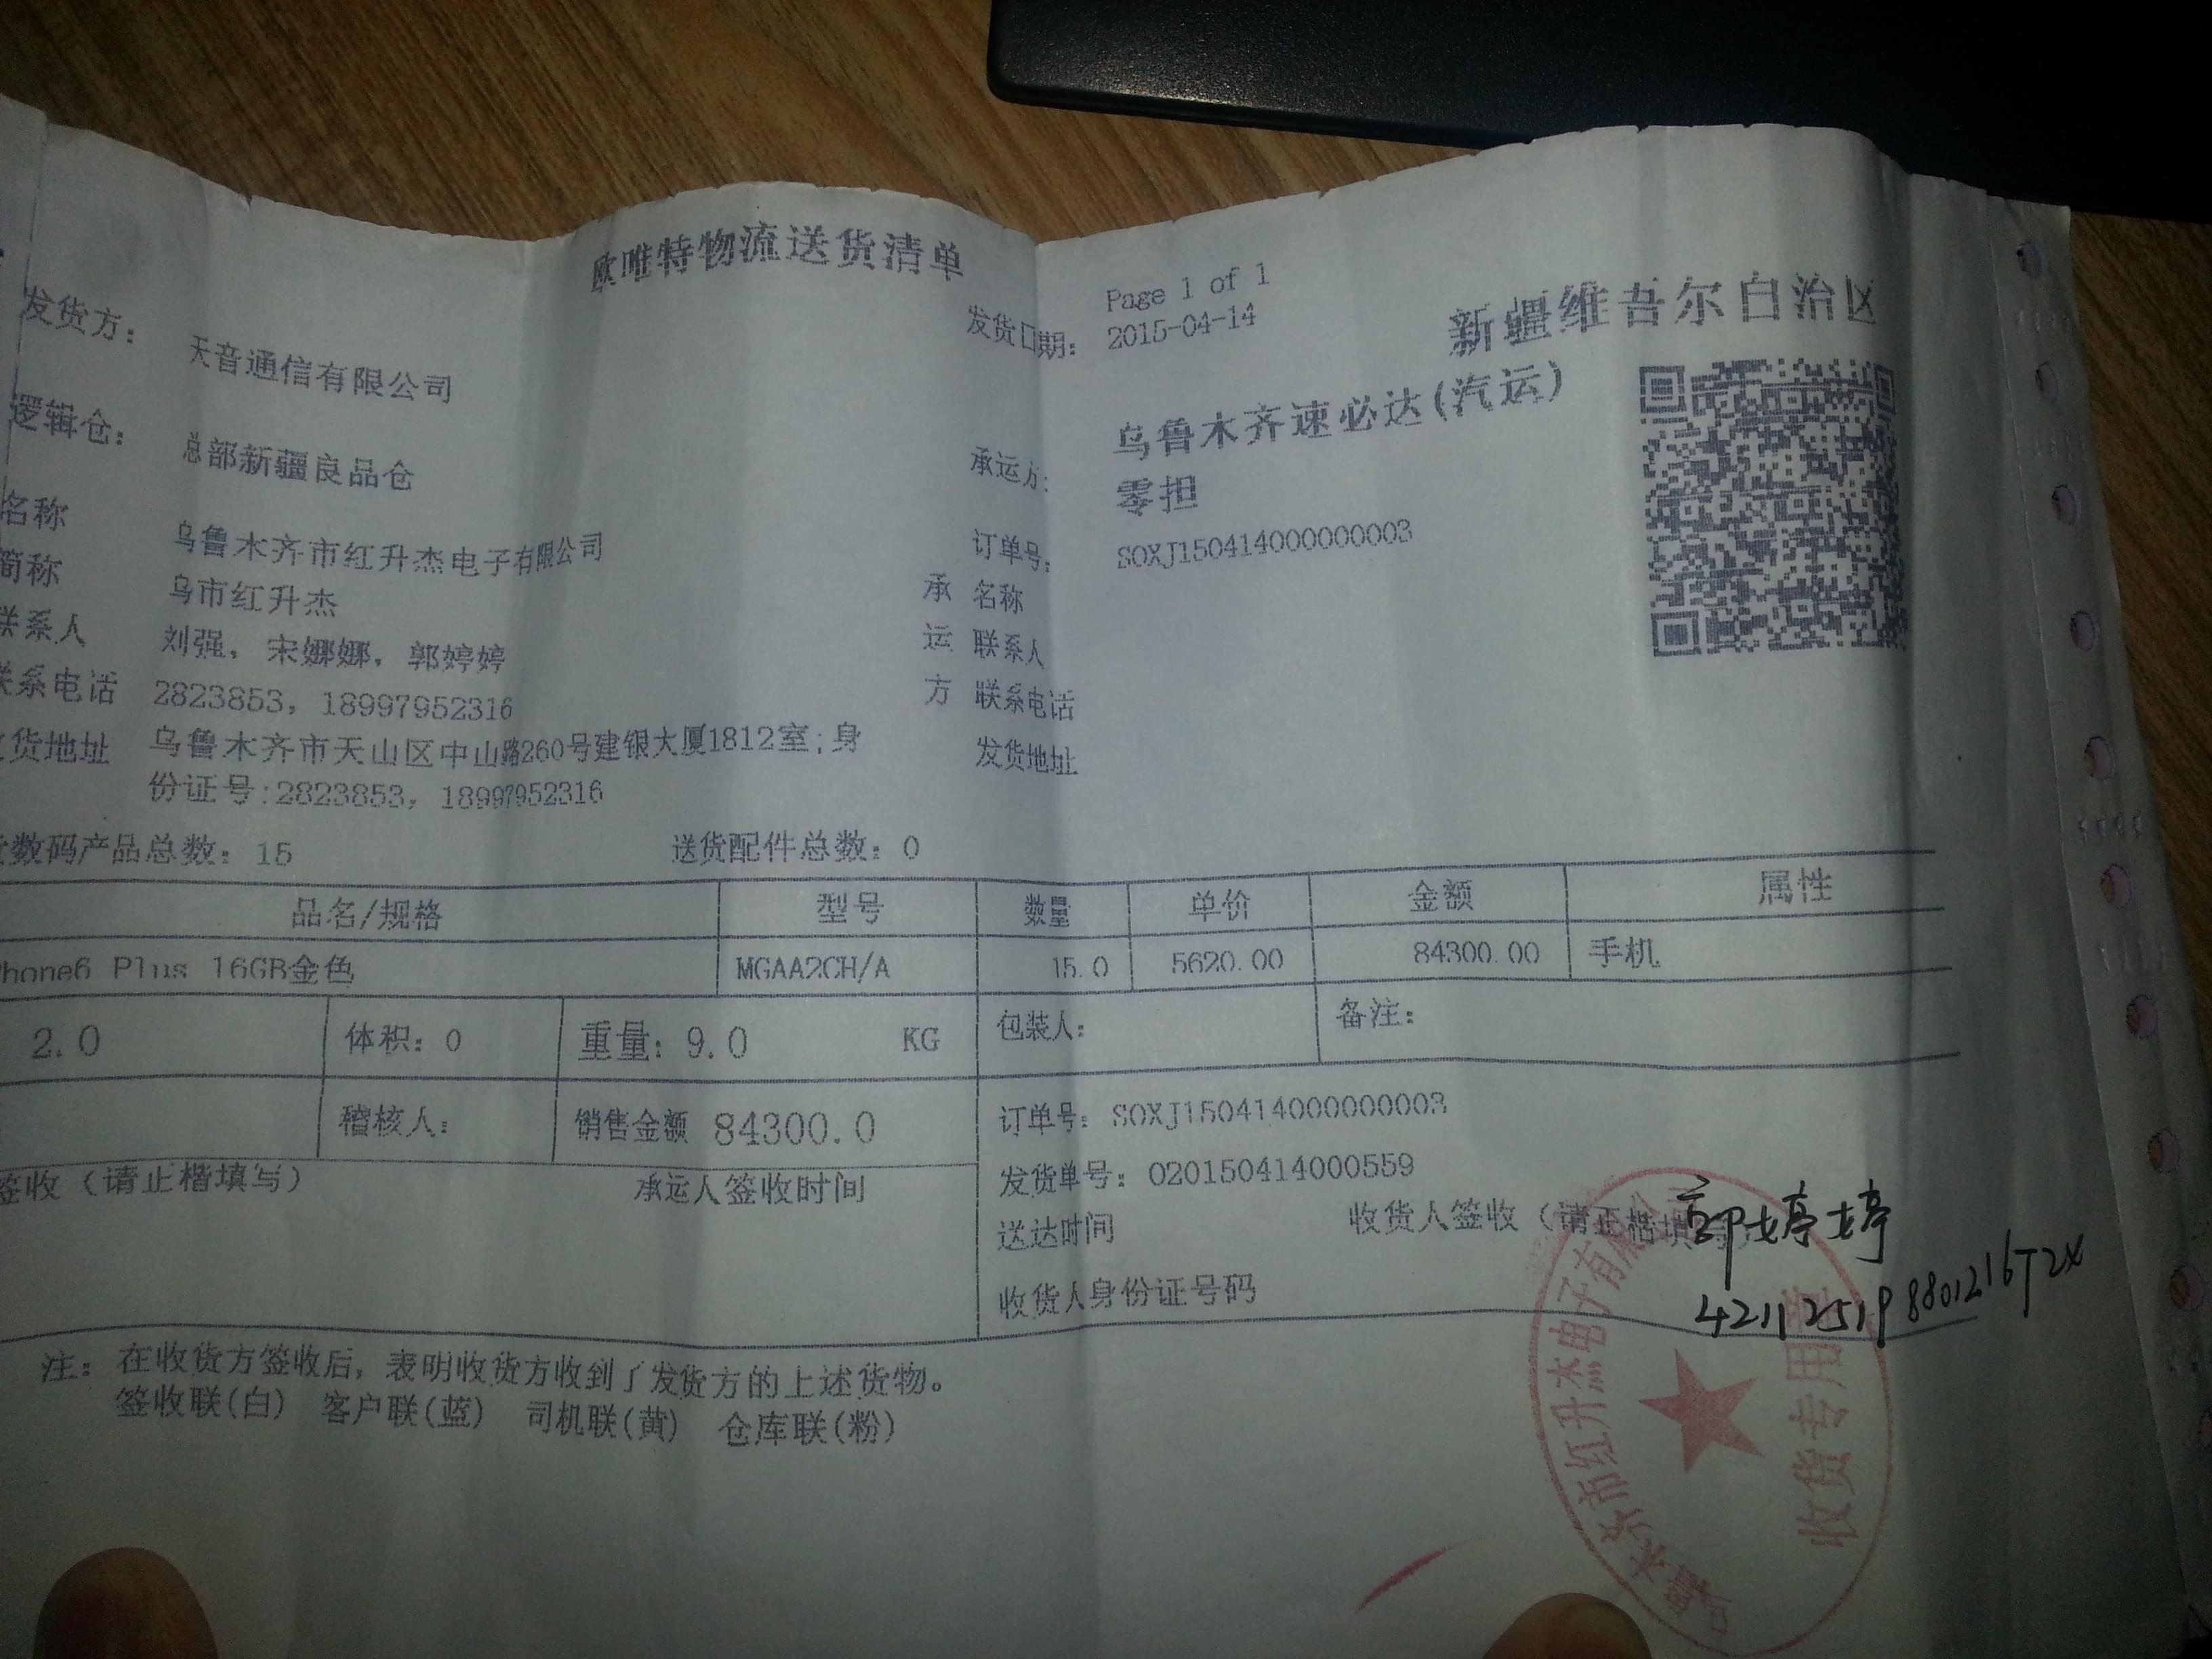 欧唯特物流送货清单
Page 1 of 1
发货方: 天音通信有限公司
发货日期: 2015-04-14
新疆维吾尔自治区
逻辑仓: 总部新疆良品仓
承运方: 乌鲁木齐速必达(汽运)
零担
名称 乌鲁木齐市红升杰电子有限公司
订单号: SOXJ150414000000003
简称 乌市红升杰
承 名称
联系人 刘强, 宋娜娜, 郭婷婷
运 联系人
联系电话 2823853, 18997952316
方 联系电话
货地址 乌鲁木齐市天山区中山路260号建银大厦1812室;身
份证号:2823853, 18997952316
发货地址
数码产品总数: 15
送货配件总数: 0
品名/规格 型号 数量 单价 金额 属性
hone6 Plus 16GB金色 MGAA2CH/A 15.0 5620.00 84300.00 手机
2.0 体积: 0 重量: 9.0 KG 包装人: 备注:
稽核人: 销售金额 84300.0 订单号: SOXJ150414000000003
签收（请正楷填写） 承运人签收时间 发货单号: 020150414000559
送达时间 收货人签收（请正楷填
郭婷婷
收货人身份证号码
注: 在收货方签收后, 表明收货方收到了发货方的上述货物。
签收联(白) 客户联(蓝) 司机联(黄) 仓库联(粉)
乌鲁木齐市红升杰电子有限公司
收货专用章